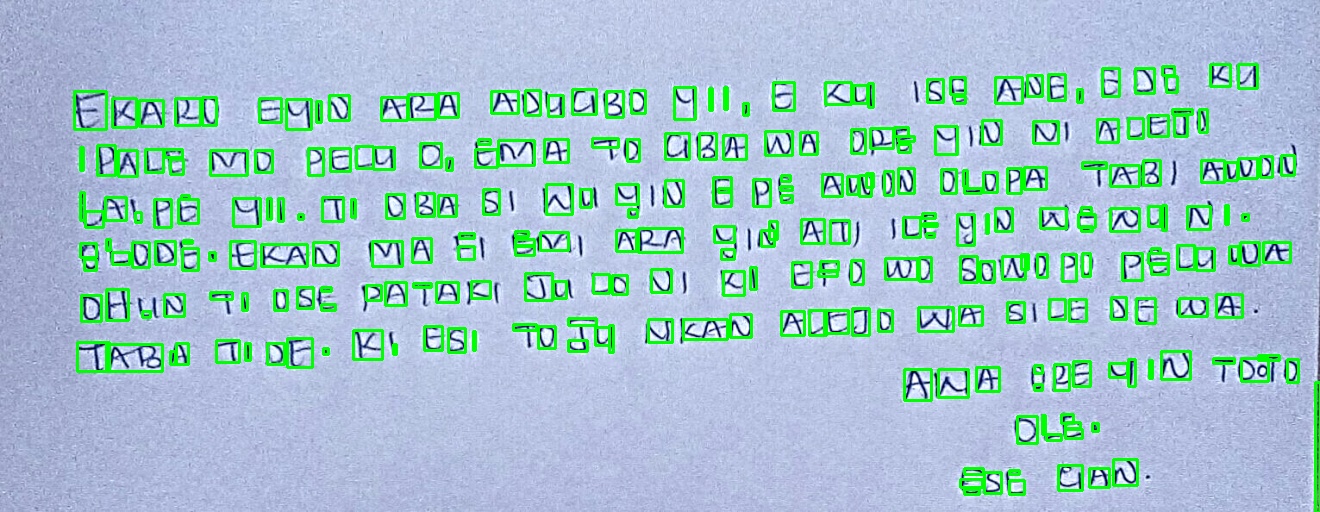 EKARO EYIN ARA ADUGBO YII, E KU ISE ANE, EDE KU
IPALE MO PELU O, EMA TO GBA WA ORE YIN NI ALEJO
LALPE YII. TI OBA SI WU YIN E PE AWON OLOPA TABI AWON
OLODE. EKAN MA FI EMI ARA YIN ATI ILE YIN WEWU NI.
OHUN TI OSE PATAKI JU LO NI KI EFO WO SOWOPO PELU WA
TABA TI DE. KI ESI TO JU NKAN ALEJO WA SILE DE WA.
AWA ORE YIN TOOTO
OLE.
ESE GAN.